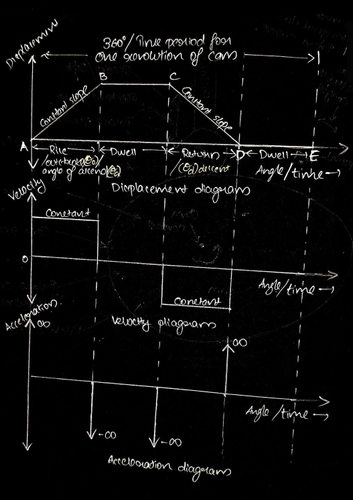 Displacement
360°/Time period for
One revolution of cam
B
C
Constant slope
Constant slope
A
D
E
Rise
Dwell
Return
Dwell
/outstroke(θo)/
angle of ascend(θo)
/(θd) descent
Angle/time→
Velocity
Displacement diagrams
Constant
O
Constant
Angle/time→
Acceleration
Velocity diagrams
∞
∞
Angle/time→
-∞
-∞
Acceleration diagrams